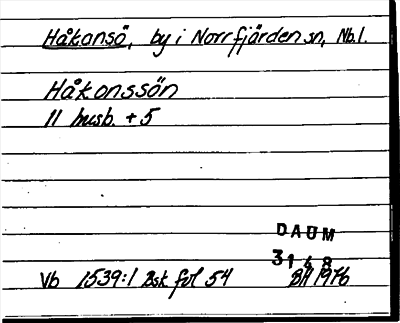 Håkansö, by i Norrfjärden sn, Nb.l.
Håkonssön
11 husb. + 5
DAUM
3148
Vb 1539:1 Bsk fol 54 BH 1976